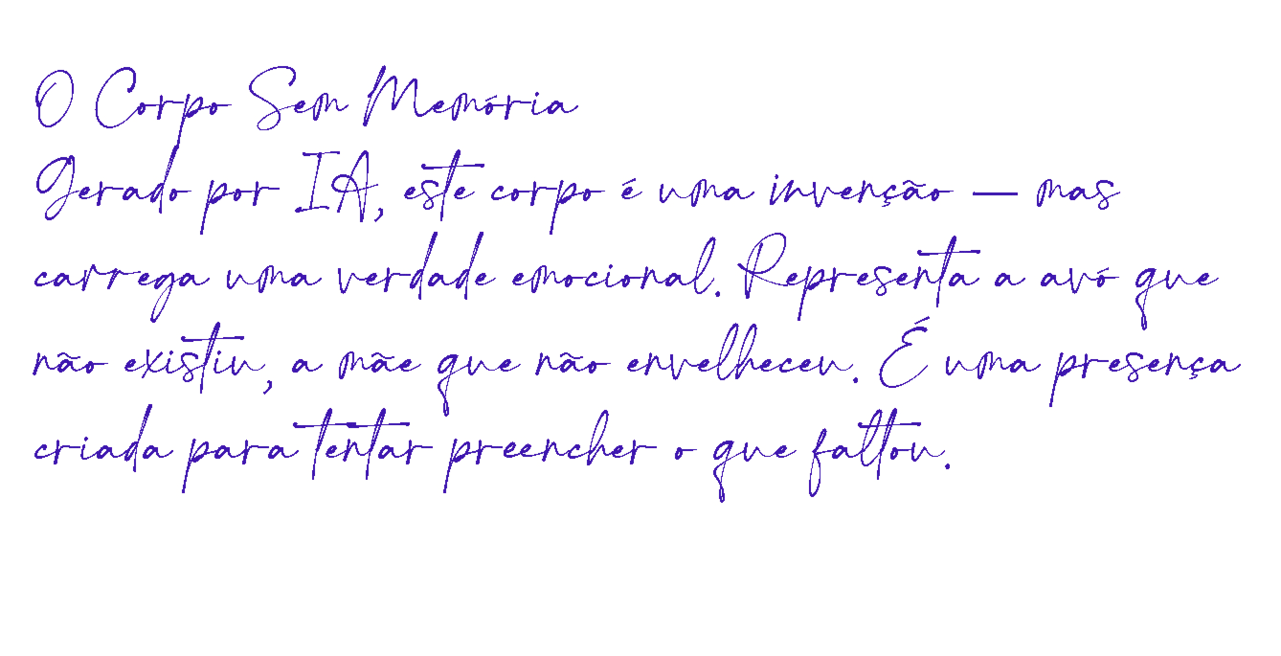 O Corpo Sem Memória
Gerado por IA, este corpo é uma invenção — mas
carrega uma verdade emocional. Representa a avó que
não existiu, a mãe que não envelheceu. É uma presença
criada para tentar preencher o que faltou.